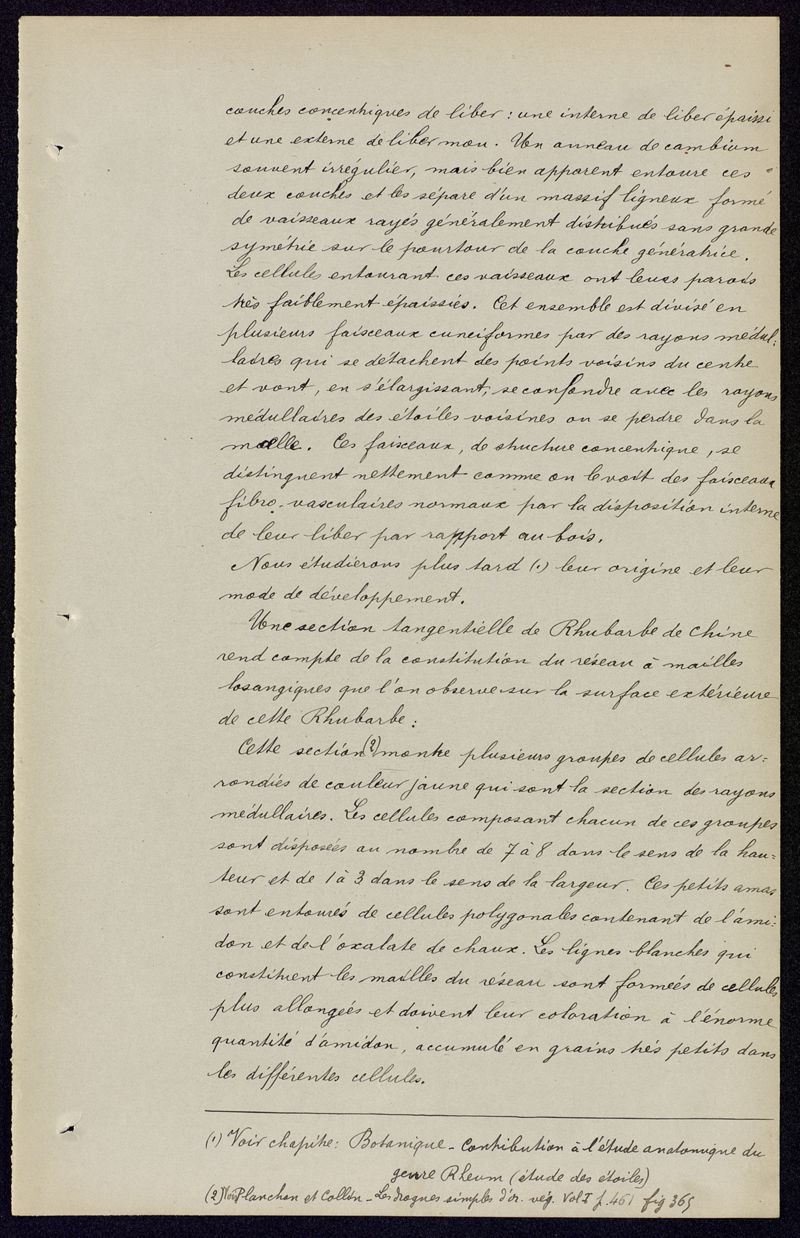 couches concentriques de liber : une interne de liber épaissi
et une externe de liber mou. Un anneau de cambium
souvent irrégulier, mais bien apparent entoure ces
deux couches et les sépare d'un massif ligneux formé
de vaisseaux rayés généralement distribués sans grande
symétrie sur le pourtour de la couche génératrice.
Les cellules entourant ces vaisseaux ont leurs parois
très faiblement épaissies. Cet ensemble est divisé en
plusieurs faisceaux cunéiformes par des rayons médul:
laires qui se détachent des points voisins du centre
et vont, en s'élargissant, se confondre avec les rayons
médullaires des étoiles voisines ou se perdre dans la
moelle. Ces faisceaux, de structure concentrique, se
distinguent nettement comme on le voit des faisceaux
fibro-vasculaires normaux par la disposition interne
de leur liber par rapport au bois.
Nous étudierons plus tard (1) leur origine et leur
mode de développement.
Une section tangentielle de Rhubarbe de Chine
rend compte de la constitution du réseau à mailles
losangiques que l'on observe sur la surface extérieure
de cette Rhubarbe :
Cette section (2) montre plusieurs groupes de cellules ar=
rondies de couleur jaune qui sont la section des rayons
médullaires. Les cellules composant chacun de ces groupes
sont disposées au nombre de 7 à 8 dans le sens de la hau=
teur et de 1 à 3 dans le sens de la largeur. Ces petits amas
sont entourés de cellules polygonales contenant de l'ami:
don et de l'oxalate de chaux. Les lignes blanches qui
constituent les mailles du réseau sont formées de cellules
plus allongées et doivent leur coloration à l'énorme
quantité d'amidon, accumulé en grains très petits dans
les différentes cellules.
(1) Voir chapitre : Botanique - Contribution à l'étude anatomique du
genre Rheum (étude des étoiles)
(2) Voir Planchon et Collin - Les drogues simples d'or. vég. Vol I p. 461 fig 365